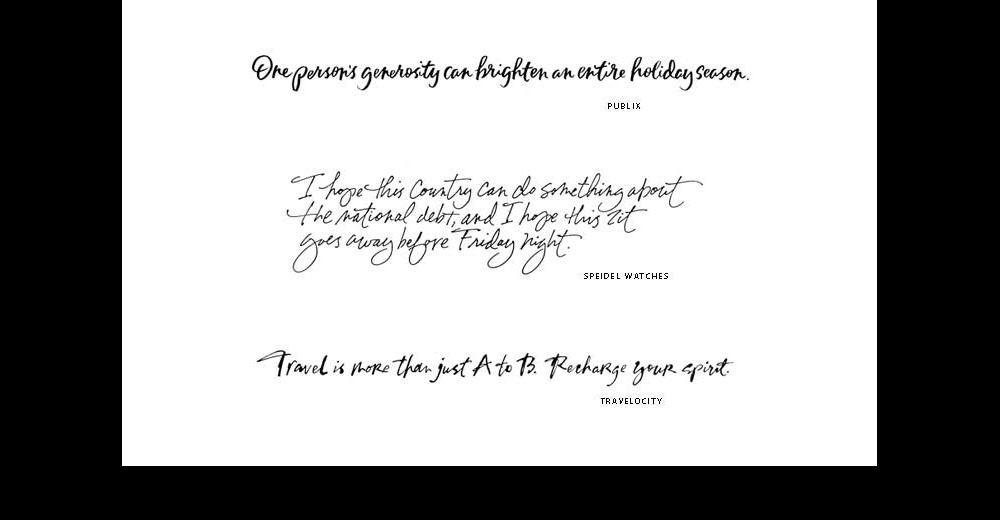 One person's generosity can brighten an entire holiday season.
PUBLIX
I hope this Country can do something about
the national debt, and I hope this zit
goes away before Friday night.
SPEIDEL WATCHES
Travel is more than just A to B. Recharge your spirit.
TRAVELOCITY